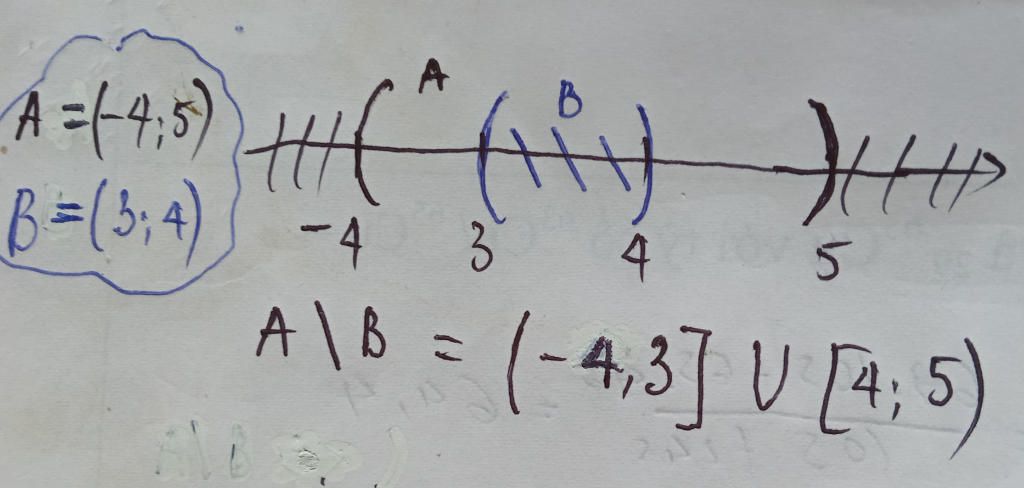 A = (-4; 5)
B = (3; 4)
A B
-4 3 4 5
A \ B = (-4, 3] U [4; 5)